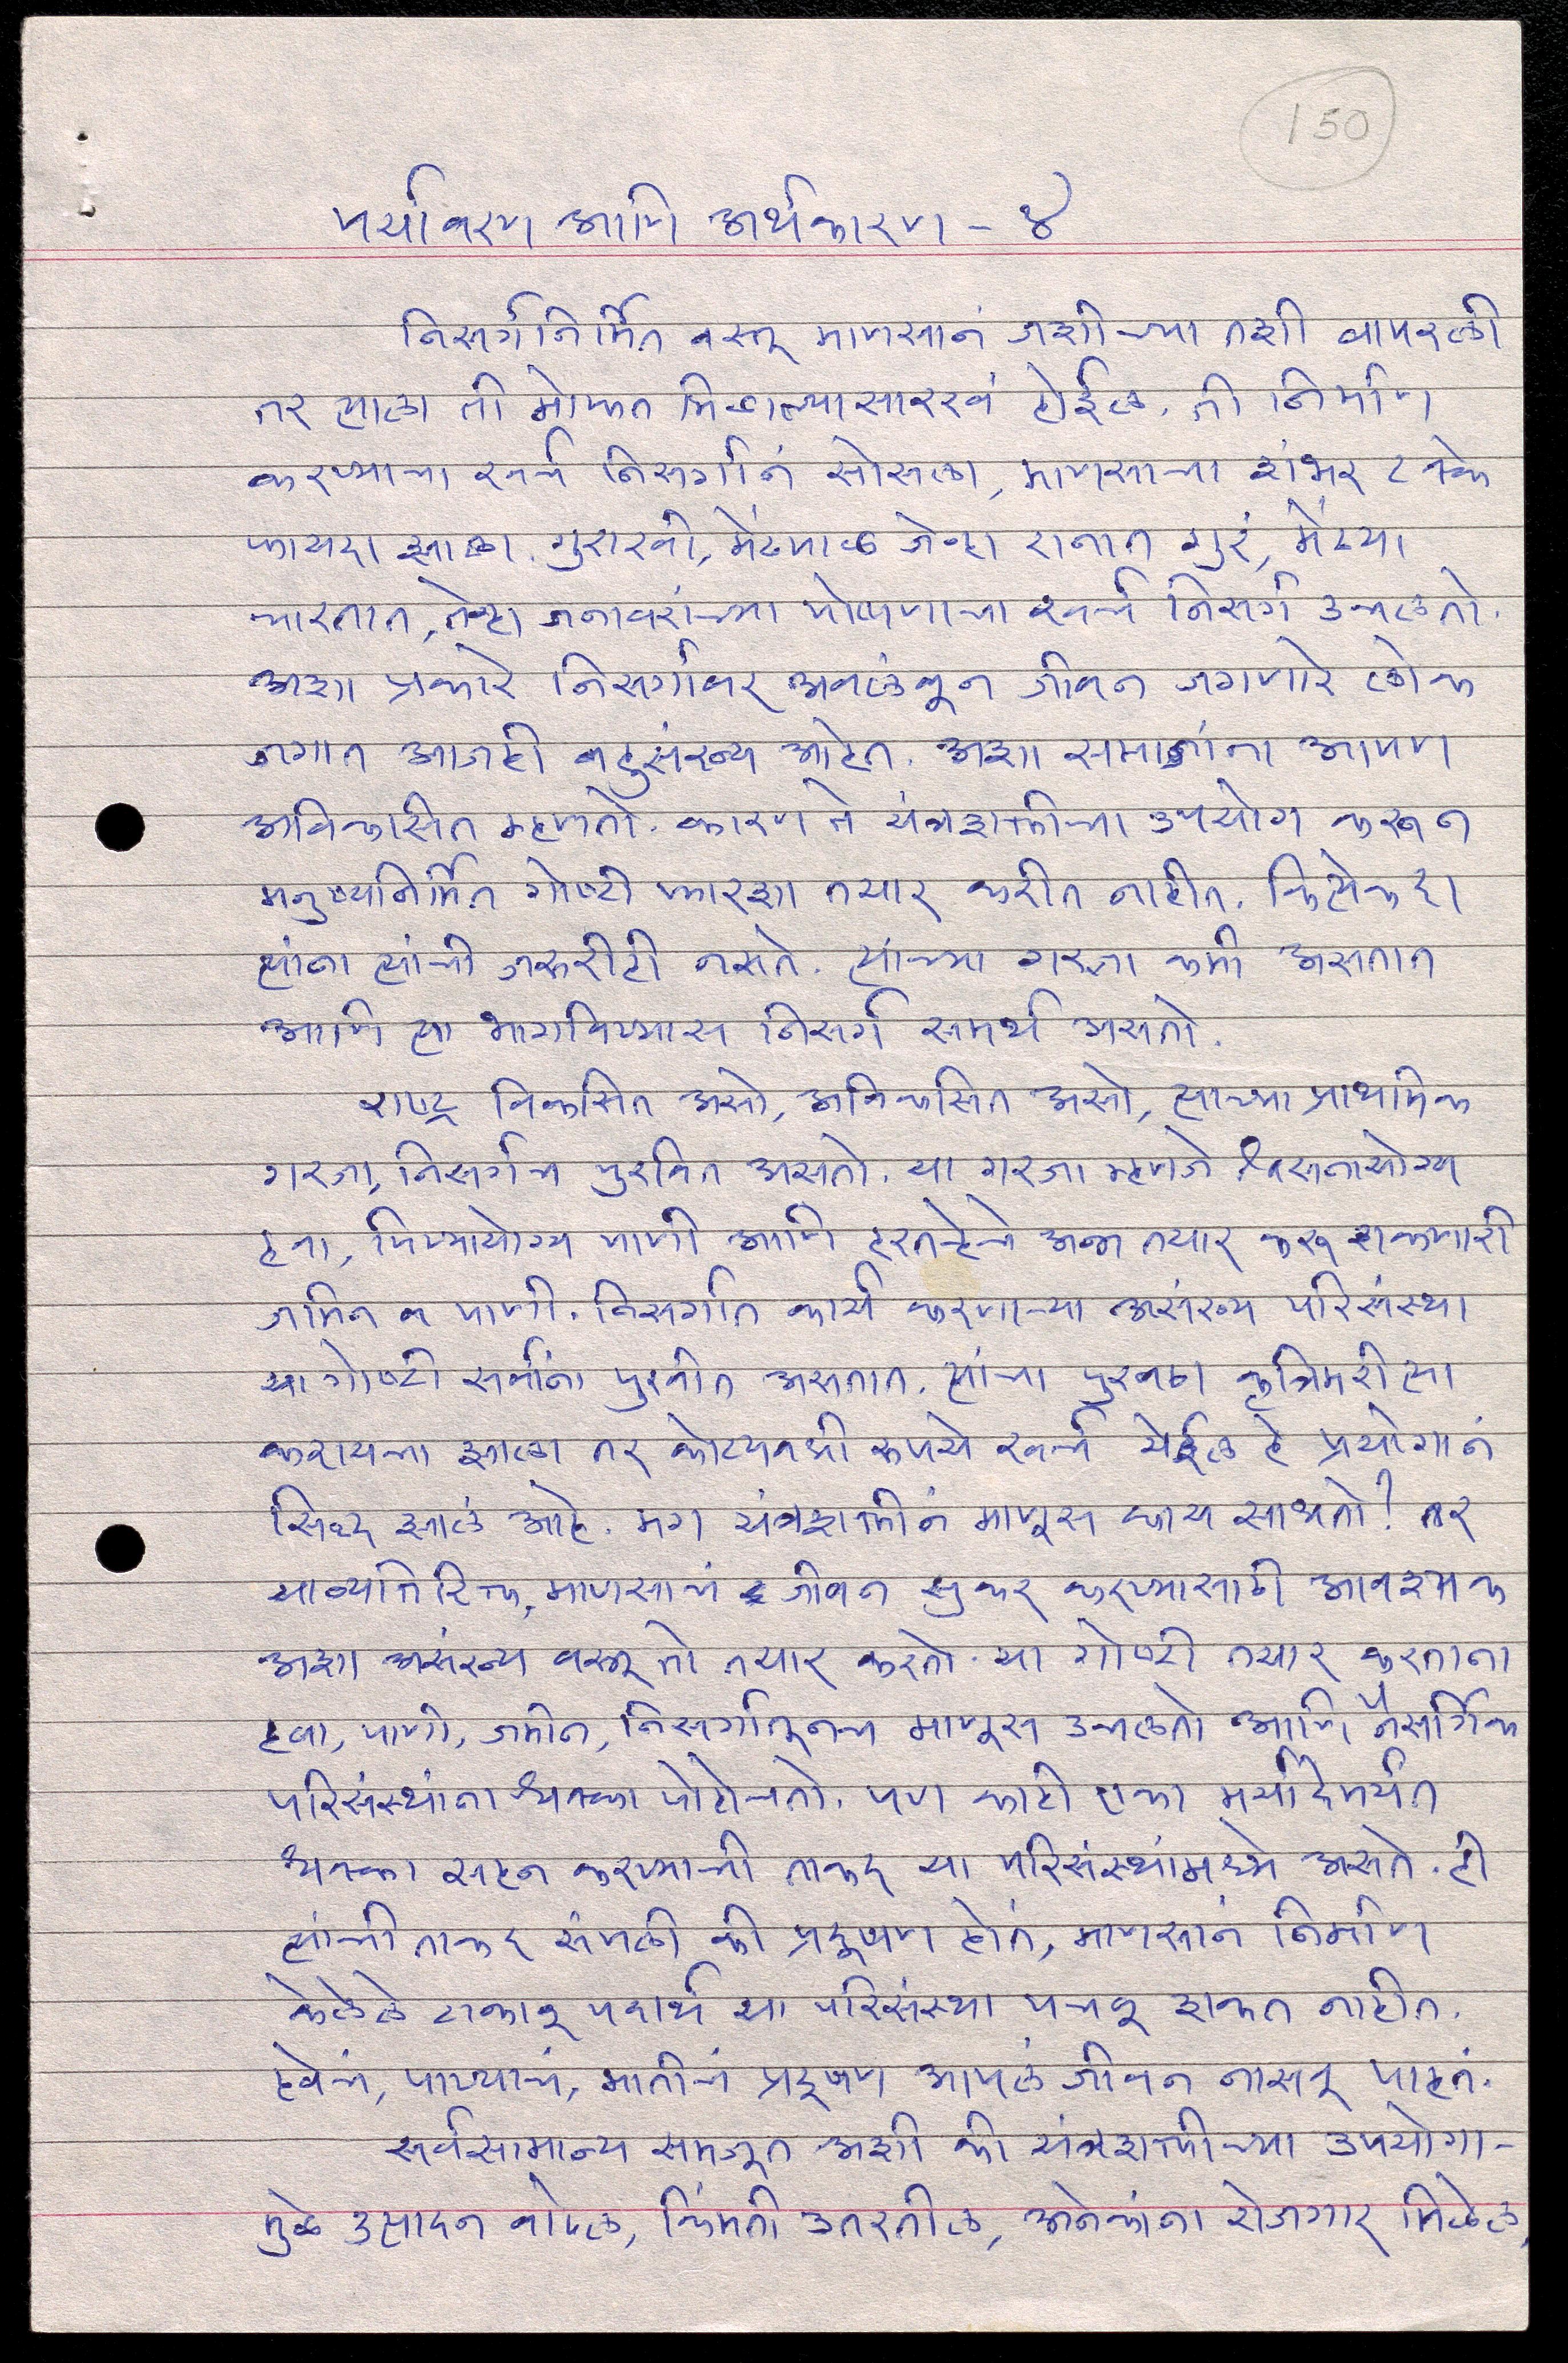 150
पर्यावरण आणि अर्थकारण - ४
निसर्गनिर्मित वस्तू माणसानं जशीच्या तशी वापरली
तर त्याला ती मोफत मिळाल्यासारखं होईल. ती निर्माण
करण्याचा खर्च निसर्गानं सोसला, माणसाचा शंभर टक्के
फायदा झाला. गुराखी, मेंढपाळ जेव्हा रानात गुरं, मेंढ्या
चारतात, तेव्हा जनावरांच्या पोषणाचा खर्च निसर्ग उचलतो.
अशा प्रकारे निसर्गावर अवलंबून जीवन जगणारे लोक
जगात आजही बहुसंख्य आहेत. अशा समाजांना आपण
अविकसित म्हणतो. कारण ते यंत्रशक्तीचा उपयोग करून
मनुष्यनिर्मित गोष्टी फारशा तयार करीत नाहीत. कित्येकदा
त्यांना त्यांची जरूरीही नसते. त्यांच्या गरजा कमी असतात
आणि त्या भागविण्यास निसर्ग समर्थ असतो.
राष्ट्र विकसित असो, अविकसित असो, त्याच्या प्राथमिक
गरजा, निसर्गच पुरवित असतो. या गरजा म्हणजे श्वसनायोग्य
हवा, पिण्यायोग्य पाणी आणि हरतऱ्हेचे अन्न तयार करू शकणारी
जमिन व पाणी. निसर्गात कार्य करणाऱ्या असंख्य परिसंस्था
या गोष्टी सर्वांना पुरवीत असतात. त्यांचा पुरवठा कृत्रिमरीत्या
करायचा झाला तर कोट्यवधी रुपये खर्च येईल हे प्रयोगानं
सिद्ध झालं आहे. मग यंत्रशक्तीनं माणूस काय साधतो? तर
याव्यतिरिक्त, माणसाचं जीवन सुकर करण्यासाठी आवश्यक
अशा असंख्य वस्तू तो तयार करतो. या गोष्टी तयार करताना
हवा, पाणी, जमीन, निसर्गातूनच माणूस उचलतो आणि नैसर्गिक
परिसंस्थांना धक्का पोहोचतो. पण काही एका मर्यादेपर्यंत
धक्का सहन करण्याची ताकद या परिसंस्थांमध्ये असते. ही
त्यांची ताकद संपली की प्रदूषण होतं, माणसानं निर्माण
केलेले टाकावू पदार्थ या परिसंस्था पचवू शकत नाहीत.
हवेचं, पाण्याचं, मातीचं प्रदूषण आपलं जीवन नासवू पाहतं.
सर्वसामान्य समजूत अशी की यंत्रशक्तीच्या उपयोगा-
मुळे उत्पादन वाढेल, किंमती उतरतील, अनेकांना रोजगार मिळेल,